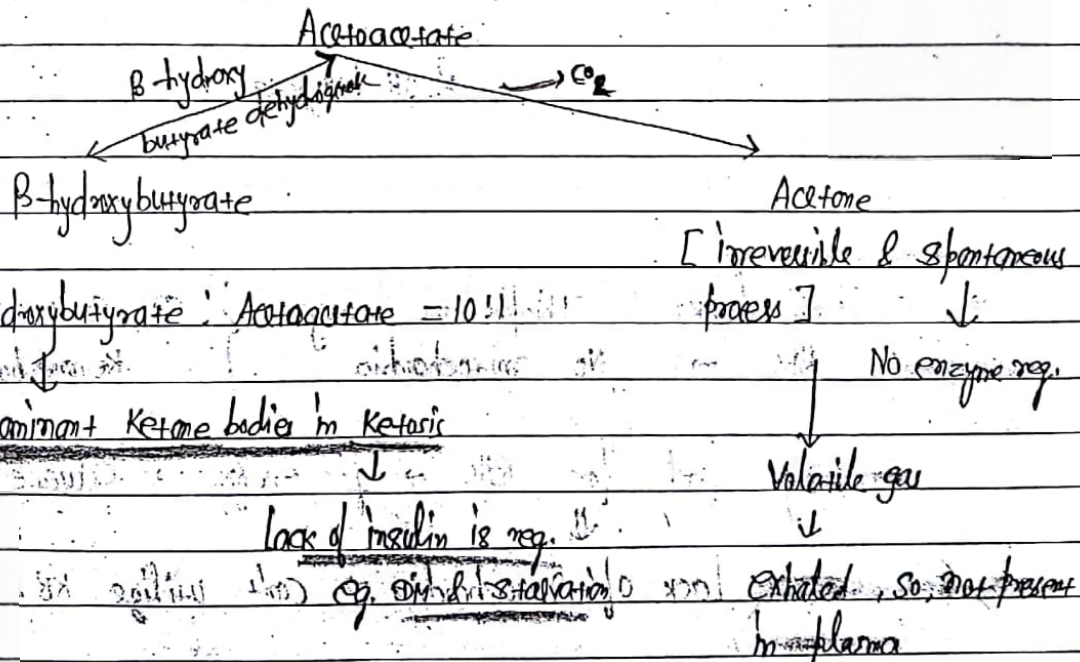 Acetoacetate
β-hydroxy
butyrate dehydrogenase
→ CO2
β-hydroxybutyrate
Acetone
[irreversible & spontaneous
process]
droxybutyrate : Acetoacetate = 10:1
No enzyme req.
ominant Ketone bodies in Ketosis
Volatile gas
Lack of insulin is req.
eg. starvation
exhaled, so, not present
in plasma